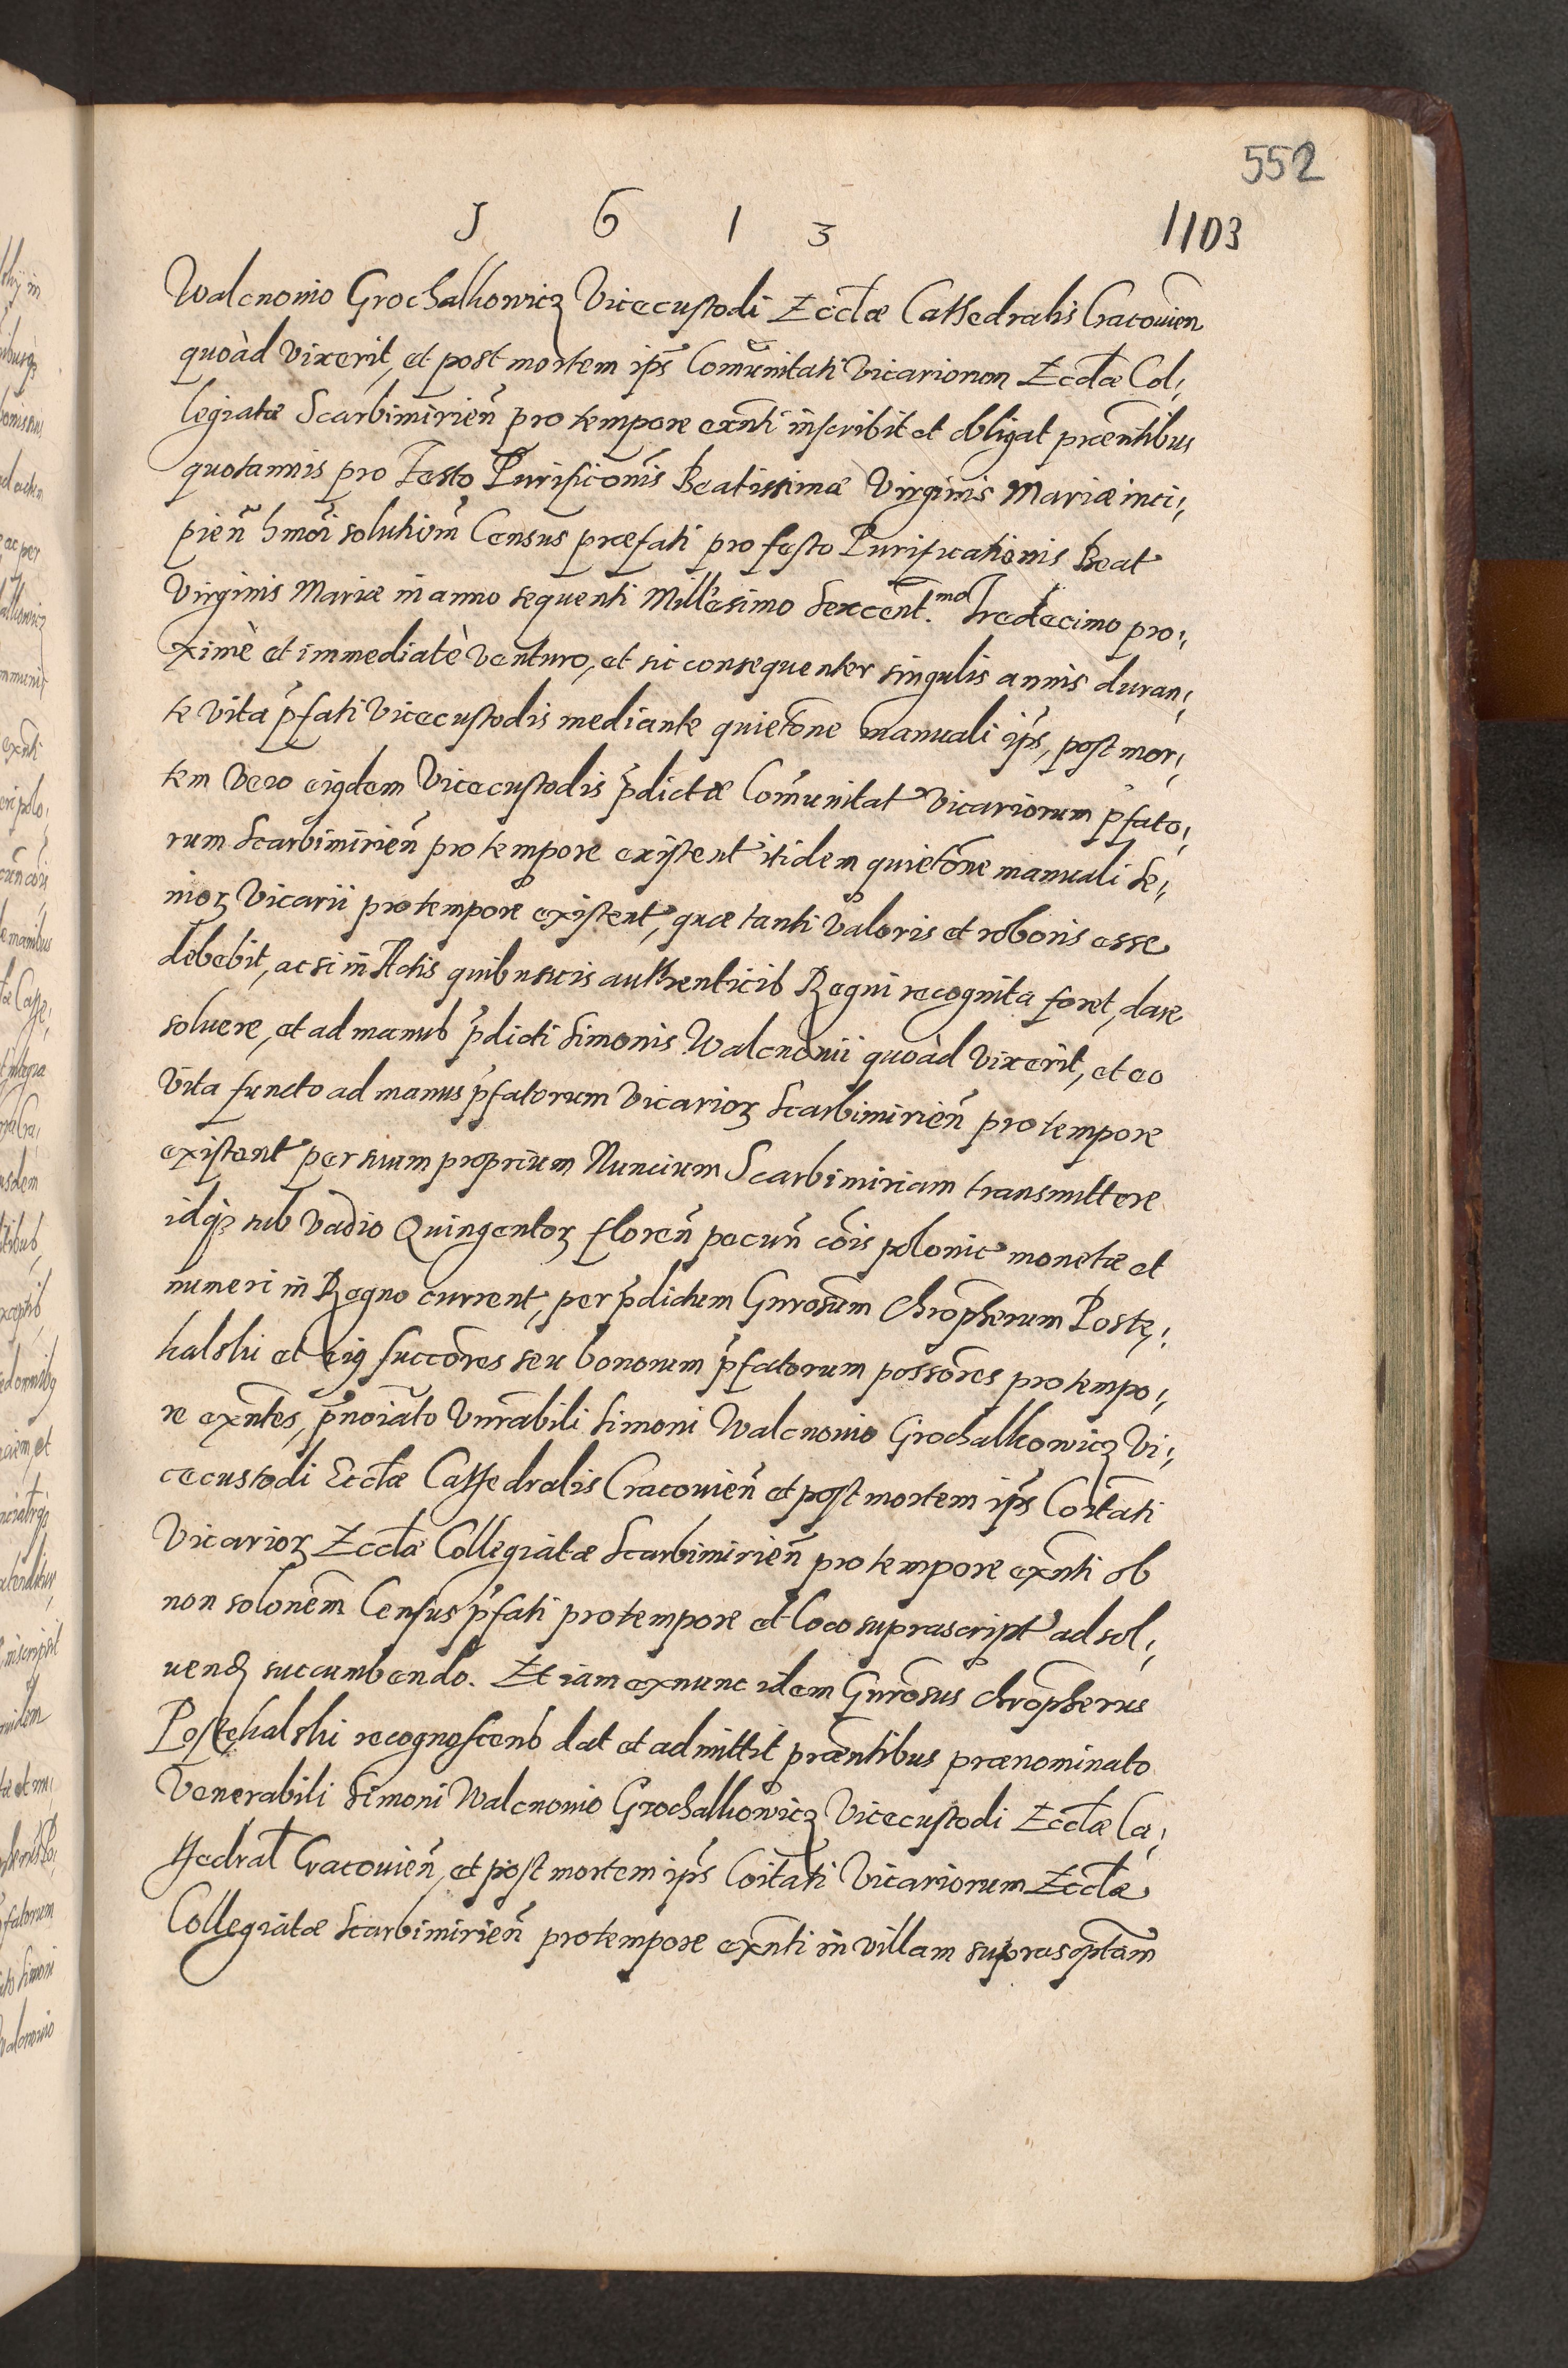 552
J 6 1 3
1103
Walcnouio Grochalkowicz Vicecustodi Eccłæ Cathedralis Cracouien̄
quoàd vixerit, et post mortem ips̃ Com̃unitati Vicariorum Eccłæ Col¡
legiatæ Scarbimirień pro tempore exn̄ti inscribit et obligat præn̄tibus
quotannis pro Festo Purificõnis Beatissimæ Virginis Mariæ inci¡
pień hmõi solutiõm Census præfati pro festo Purificationis Beat
Virginis Mariæ in anno sequenti Millesimo Sexcent.mo Tredecimo pro¡
ximè et immediatè venturo, et sic consequenter singulis annis duran¡
te vita p̃fati Vicecustodis mediante quietõne manuali ips̃, post mor¡
tem vero eiɡdem Vicecustodis p̃dictæ Com̃unitat Vicariorum p̃fato¡
rum Scarbimirień pro tempore existent itidem quietõne manuali Se¡
nioꝝ Vicarii pro tempore existent, quæ tanti valoris et roboris esse
debebit, ac si in Actis quibusuis authenticis Regni recognita foret, dare
soluere, et ad manus p̃dicti Simonis Walcnouii quoàd vixerit, et eo
vita functo ad manus p̃fatorum Vicarioꝝ Scarbimirień pro tempore
existent per suum proprium Nuncium Scarbimiriam transmittere
idqꝫ sub vadio Quingentoꝝ floreń pecuń cõis polonic monetæ et
numeri in Regno current, per p̃dictum Gnrosum Chrõpherum Poste¡
kalski et eiɡ succõres seu bonorum p̃fatorum possõres pro tempo¡
re exn̄tes, p̃noĩato Vnrãbili Simoni Walcnouio Grochalkowicz Vi¡
cecustodi Eccłæ Cathedralis Cracouień et post mortem ips̃ Coĩtati
Vicarioꝝ Eccłæ Collegiatæ Scarbimirień pro tempore exn̄ti ob
non solõnem Census p̃fati pro tempore et loco suprascript ad sol¡
uenđ succumbendo. Et iam exnunc idem Gnrõsus Chrõpherus
Postekalski recognoscens dat et admittit præn̄tibus prænominato
Venerabili Simoni Walcnouio Grochalkowicz Vicecustodi Eccłæ Ca¡
thedral Cracouień, et post mortem ips̃ Coĩtati Vicariorum Eccłæ
Collegiatæ Scarbimirień pro tempore exn̄ti in villam suprasc̃ptam